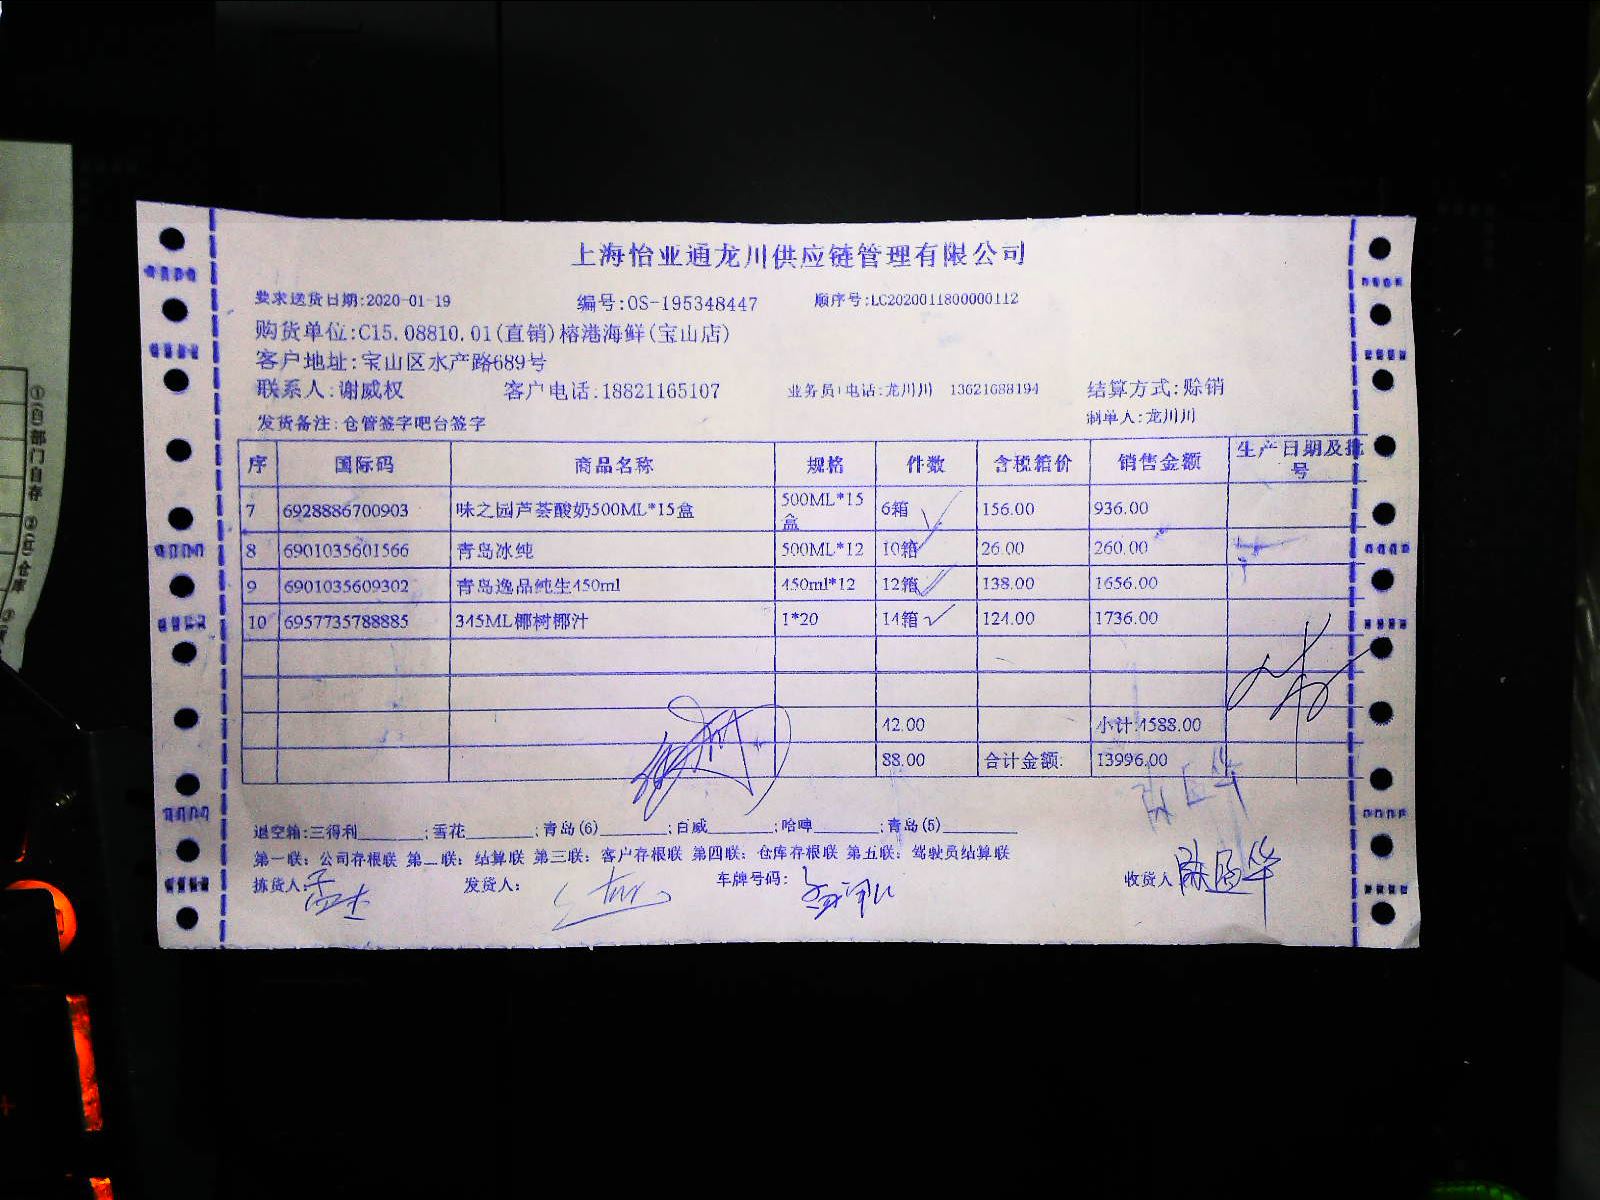 上海怡亚通龙川供应链管理有限公司
要求送货日期:2020-01-19 编号:OS-195348447 顺序号:LC2020011800000112
购货单位:C15.08810.01(直销)榕港海鲜(宝山店)
客户地址:宝山区水产路689号
联系人:谢威权 客户电话:18821165107 业务员|电话:龙川川 13621688194 结算方式:赊销
发货备注:仓管签字吧台签字 制单人:龙川川
序 国际码 商品名称 规格 件数 含税箱价 销售金额 生产日期及批号
7 6928886700903 味之园芦荟酸奶500ML*15盒 500ML*15盒 6箱 156.00 936.00
8 6901035601566 青岛冰纯 500ML*12 10箱 26.00 260.00
9 6901035609302 青岛逸品纯生450ml 450ml*12 12箱 138.00 1656.00
10 6957735788885 345ML椰树椰汁 1*20 14箱 124.00 1736.00
42.00 小计:4588.00
88.00 合计金额: 13996.00
退空箱:三得利______;雪花______;青岛(6)______;百威______;哈啤______;青岛(5)______
第一联: 公司存根联 第二联: 结算联 第三联: 客户存根联 第四联: 仓库存根联 第五联: 驾驶员结算联
拣货人: 孟杰 发货人: 车牌号码: 收货人
①(白)部门自存 ②(红)仓库